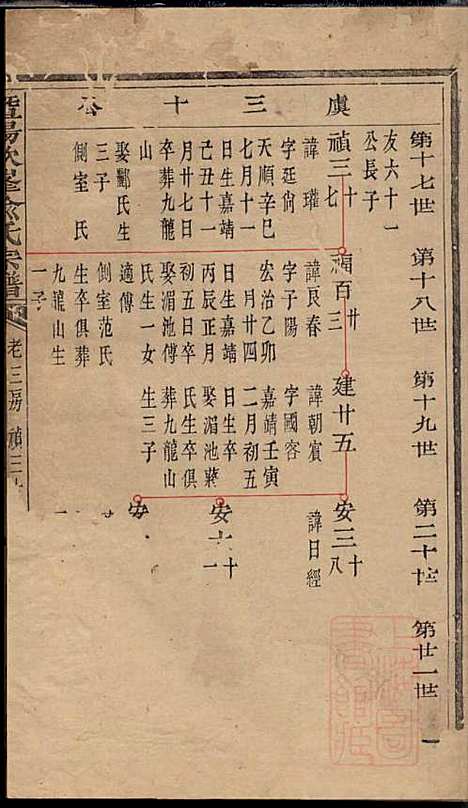 第十七世 第十八世 第十九世 第二十世 第廿一世
友六十一
公長子
虞三十公
禎三十七
諱瓘
字廷尙
天順辛巳
七月十一
日生嘉靖
己丑十一
月廿七日
卒葬九龍
山
娶酈氏生
三子
側室 氏
福百廿三
諱辰春
字子陽
宏治乙卯
月廿四
日生嘉靖
丙辰正月
初五日卒
娶湄池傅
氏生一女
適傅
側室范氏
生卒俱葬
九龍山生
一子
建廿五
諱朝賓
字國容
嘉靖壬寅
二月初五
日生卒
娶湄池蔣
氏生卒俱
葬九龍山
生三子
安三十八
諱日經
安六十一
安
氏宗譜
老三房 禎三
一